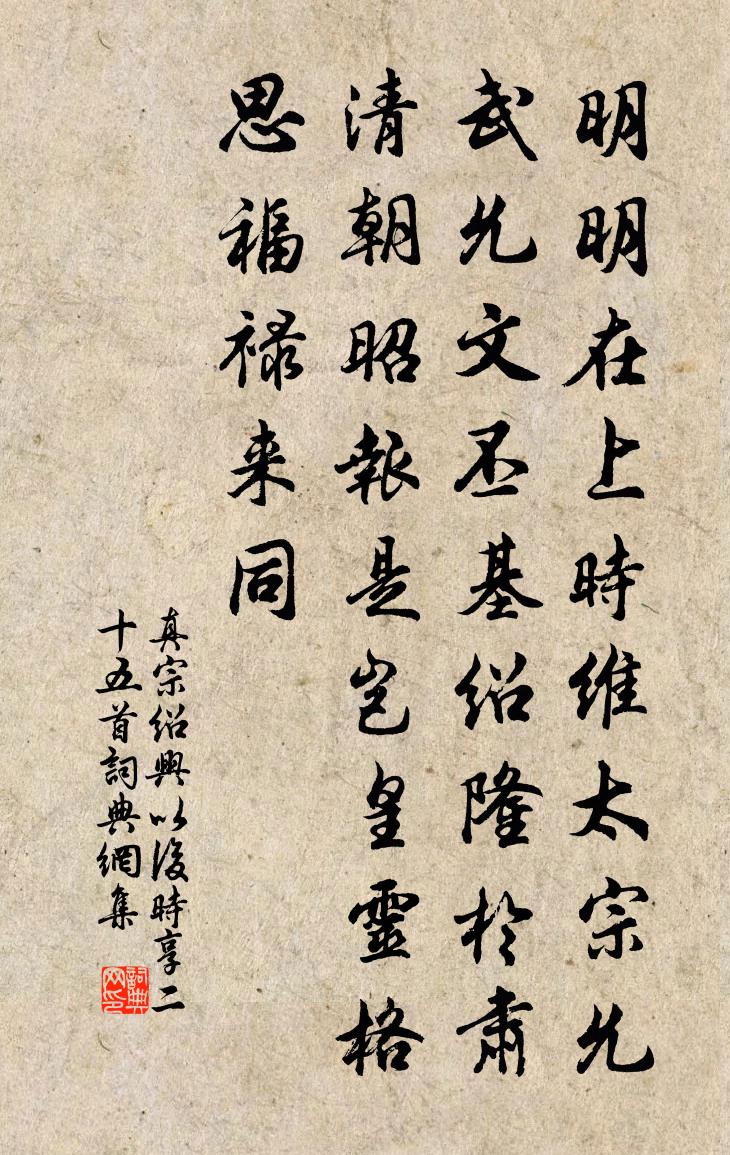 明明在上時維太宗允
武允文丕基紹隆於肅
清朝昭報是岂皇靈格
思福禄来同
真宗紹興以後時享二
十五首詞典網集
詞典
网印